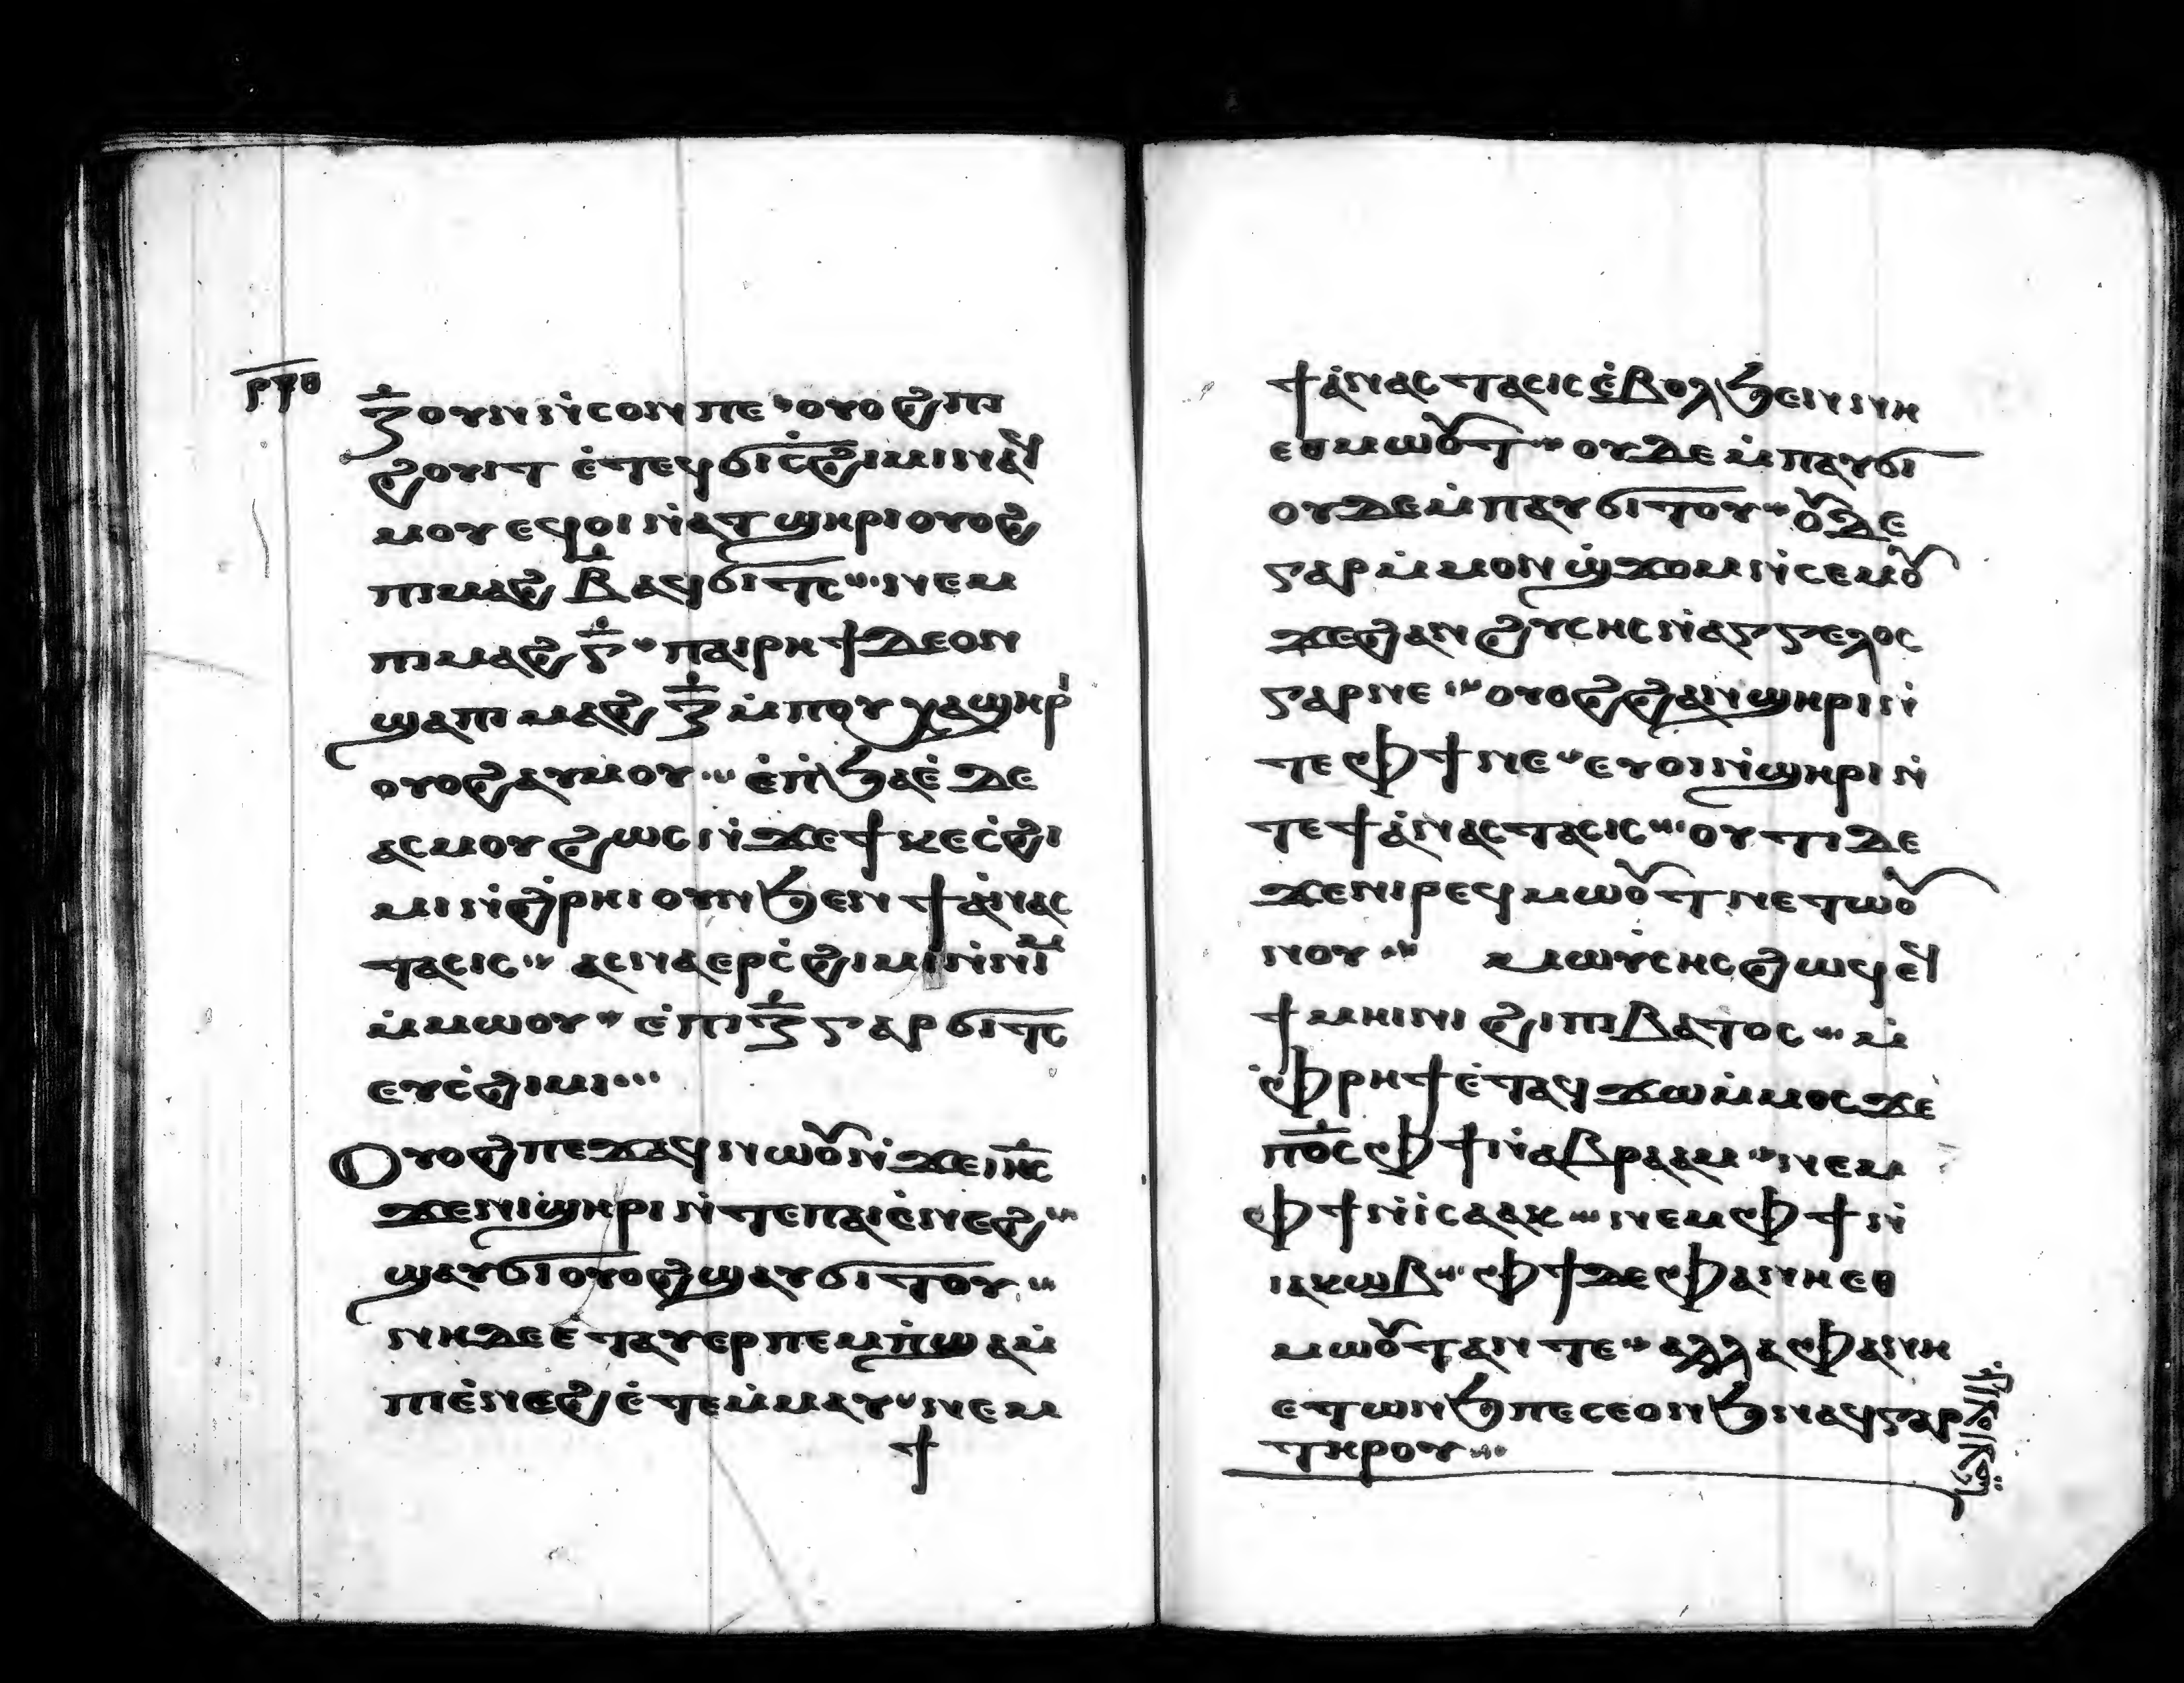 ⲣⲡⲑ
ⲍ̄ ⲟⲩⲛ ⲛ̀ⲥⲟⲛ ⲡⲉ ⲟⲩⲟϩ ⲡⲓ
ϩⲟⲩⲓⲧ ⲉ̀ⲧⲉϥϭⲓ ⲥ̀ϩⲓⲙⲓ ⲛⲁϥ
ⲙⲟⲩ ⲉϥⲟⲓ ⲛ̀ⲁⲧϣⲏⲣⲓ ⲟⲩⲟϩ
ⲡⲓⲙⲁϩ ⲃ̄ ⲁϥϭⲓⲧⲥ ⲛⲉⲙ
ⲡⲓⲙⲁϩ ⲅ̄ ⲡⲁⲓⲣⲏϯ ⲇⲉ ⲟⲛ
ϣⲁ ⲡⲓⲙⲁϩ ⲍ̄ ⲙ̀ⲡⲟⲩⲭⲁ ϣⲏⲣⲓ
ⲟⲩⲟϩ ⲁⲩⲙⲟⲩ ⲉ̀ⲡϧⲁⲉ̀ ⲇⲉ
ⲁⲥⲙⲟⲩ ϩⲱⲥ ⲛ̀ϫⲉ ϯⲕⲉⲥ̀ϩⲓ
ⲙⲓ ⲛ̀ϩ̀ⲣⲏⲓ ⲟⲩⲛ ϧⲉⲛ ϯⲁ̀ⲛⲁⲥ
ⲧⲁⲥⲓⲥ ⲁⲥⲛⲁⲉⲣⲥ̀ϩⲓⲙⲓ ⲛ̀ⲛⲓⲙ
ⲙ̀ⲙⲱⲟⲩ ⲉ̀ⲡⲓ ⲍ̄ ⲅⲁⲣ ϭⲓⲧⲥ
ⲉⲩⲥ̀ϩⲓⲙⲓ
Ⲟⲩⲟϩ ⲡⲉϫⲁϥ ⲛⲱⲟⲩ ⲛ̀ϫⲉ ⲓⲏ̄ⲥ
ϫⲉ ⲛⲓϣⲏⲣⲓ ⲛ̀ⲧⲉ ⲡⲁⲓⲉ̀ⲛⲉϩ
ϣⲁⲩϭⲓ ⲟⲩⲟϩ ϣⲁⲩϭⲓⲧⲟⲩ
ⲛⲏ ⲇⲉ ⲉⲧⲁⲩⲉⲣⲡⲉⲙⲡ̀ϣⲁ ⲙ̀
ⲡⲓⲉ̀ⲛⲉϩ ⲉ̀ⲧⲉⲙ̀ⲙⲁⲩ ⲛⲉⲙ
ϯ
ϯⲁ̀ⲛⲁⲥⲧⲁⲥⲓⲥ ⲉ̀ⲃⲟⲗ ϧⲉⲛ ⲛⲏ
ⲉⲑⲙⲱⲟⲩⲧ ⲟⲩⲇⲉ ⲙ̀ⲡⲁⲩϭⲓ
ⲟⲩⲇⲉ ⲙ̀ⲡⲁⲩϭⲓⲧⲟⲩ ⲟⲩⲇⲉ
ⲅⲁⲣ ⲙ̀ⲙⲟⲛ ϣ̀ϫⲟⲙ ⲛ̀ⲥⲉⲙⲟⲩ
ϫⲉ ϩⲁⲛϩⲩⲥⲏⲥ ⲛ̀ⲁⲅⲅⲉⲗⲟⲥ
ⲅⲁⲣ ⲛⲉ ⲟⲩⲟϩ ϩⲁⲛϣⲏⲣⲓ ⲛ̀
ⲧⲉ ⲫϯ ⲛⲉ ⲉⲩⲟⲓ ⲛ̀ϣⲏⲣⲓ ⲛ̀
ⲧⲉ ϯⲁ̀ⲛⲁⲥⲧⲁⲥⲓⲥ ⲟⲩⲧⲓ ⲇⲉ
ϫⲉ ⲛⲓⲣⲉϥⲙⲱⲟⲩⲧ ⲛⲉⲧⲱⲟⲩ
ⲛⲟⲩ ⲙⲱⲩⲥⲏⲥ ϩⲱϥ ⲉϥ
ϯⲙⲏⲓⲛⲓ ϩⲓ ⲡⲓⲃⲁⲧⲟⲥ ⲙ̀
ⲫ̀ⲣⲏϯ ⲉ̀ⲧⲁϥϫⲱ ⲙ̀ⲙⲟⲥ ϫⲉ
ⲡ̄ⲟ̄ⲥ ⲫϯ ⲛ̀ⲁⲃⲣⲁⲁⲙ ⲛⲉⲙ
ⲫϯ ⲛ̀ⲓ̀ⲥⲁⲁⲕ ⲛⲉⲙ ⲫϯ ⲛ̀
ⲓⲁⲕⲱⲃ ⲫϯ ⲇⲉ ⲫⲁ ⲛⲏ ⲉⲑ
ⲙⲱⲟⲩⲧ ⲁⲛ ⲧⲉ ⲁⲗⲗⲁ ⲫⲁ ⲛⲏ
ⲉⲧⲱⲛϧ ⲡⲉ ⲥⲉⲟⲛϧ ⲛⲁϥ ⲅⲁⲣ
ⲧⲏⲣⲟⲩ